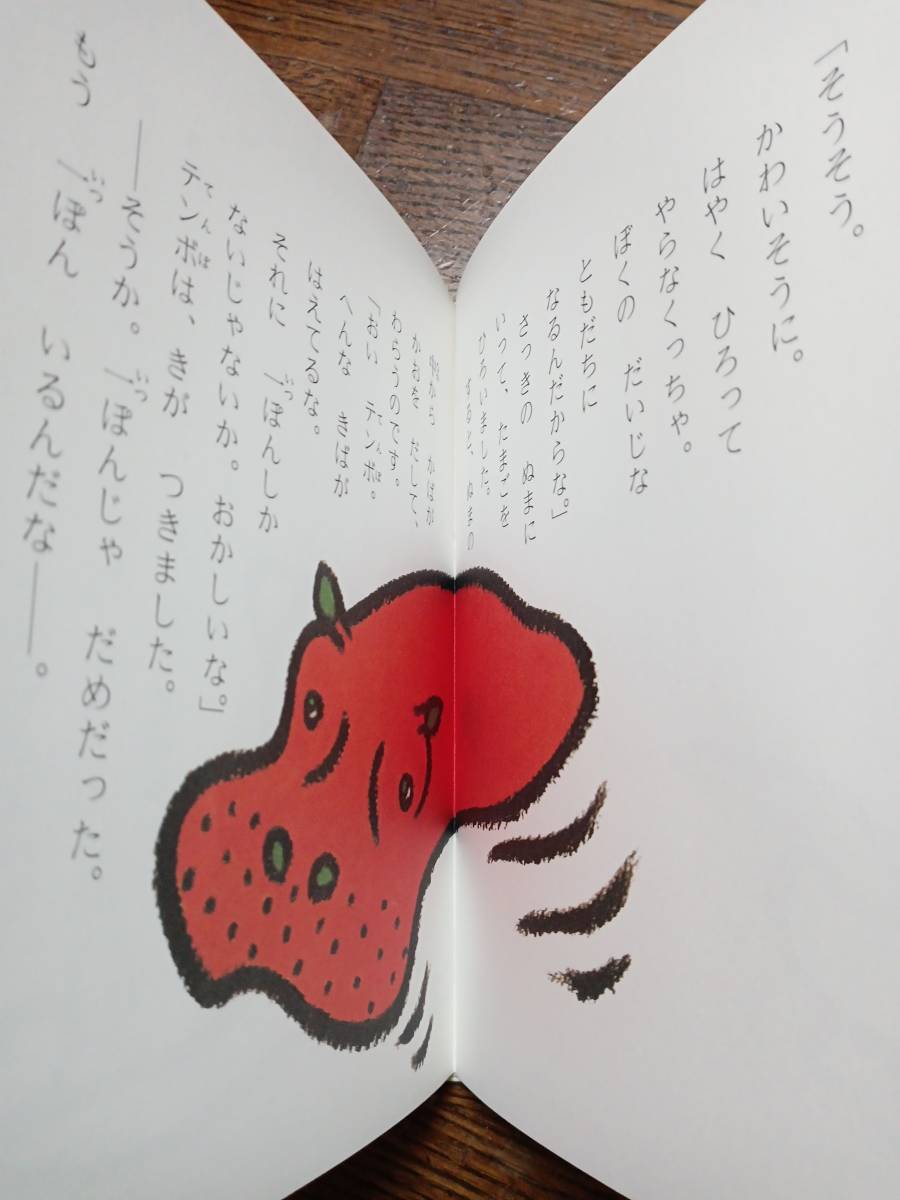 「そうそう。
かわいそうに。
はやく　ひろって
やらなくっちゃ。
ぼくの　だいじな
ともだちに
なるんだからな。」
さっきの　ぬまに
いって、たまごを
ひろいました。
すると、ぬまの
中から　かばが
かおを　だして、
わらうのです。
「おい　テンボ。
へんな　きばが
はえてるな。
それに　一ぽんしか
ないじゃないか。おかしいな。」
テンボは、きが　つきました。
――そうか。一ぽんじゃ　だめだった。
もう　一ぽん　いるんだな――。